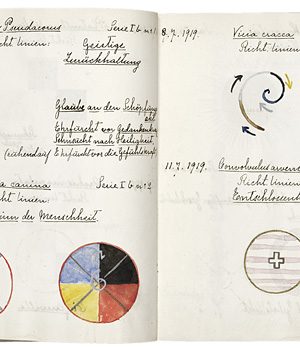 Pseudacorus Serie I b nr 1.
cht linien: Geistige
Zurückhaltung
Glaube an den Schöpfung
Ehrfurcht vor Gedanken
Sehnsucht nach Heiligkeit,
Ehrfurcht vor die Gefühlskraft
a canina Serie I b nr 2
cht linien:
inn der Menschheit
8.7.1919. Vicia cracca
Richt linien
11.7.1919. Convolvulus arven
Richt linien
Entschlossen